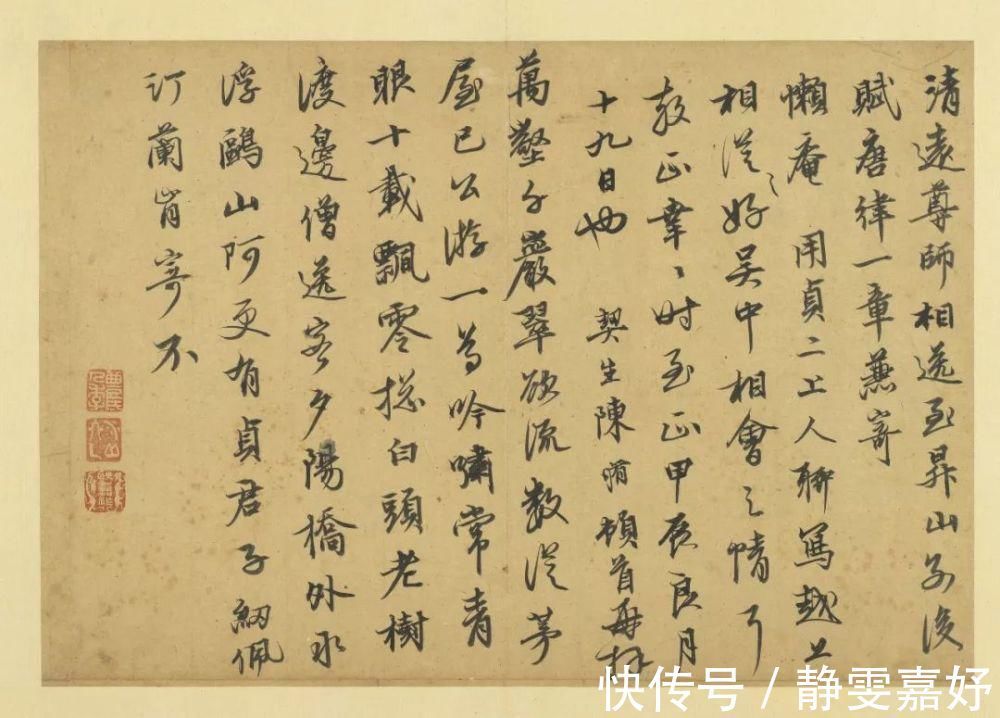 清遠尊師相送至昇山別後
賦唐律一章兼寄
懶庵 用貞二上人聊寫越上
相從之好吳中相會之情耳
教正幸〻時至正甲辰良月
十九日也 契生陳 頓首再拜
萬壑千巖翠欲流數從茅
屋已公游一為吟嘯常青
眼十載飄零揔白頭老樹
渡邊僧送客夕陽橋外水
浮鷗山阿更有貞君子紉佩
汀蘭肯寄不
快传号 / 静雯嘉妤